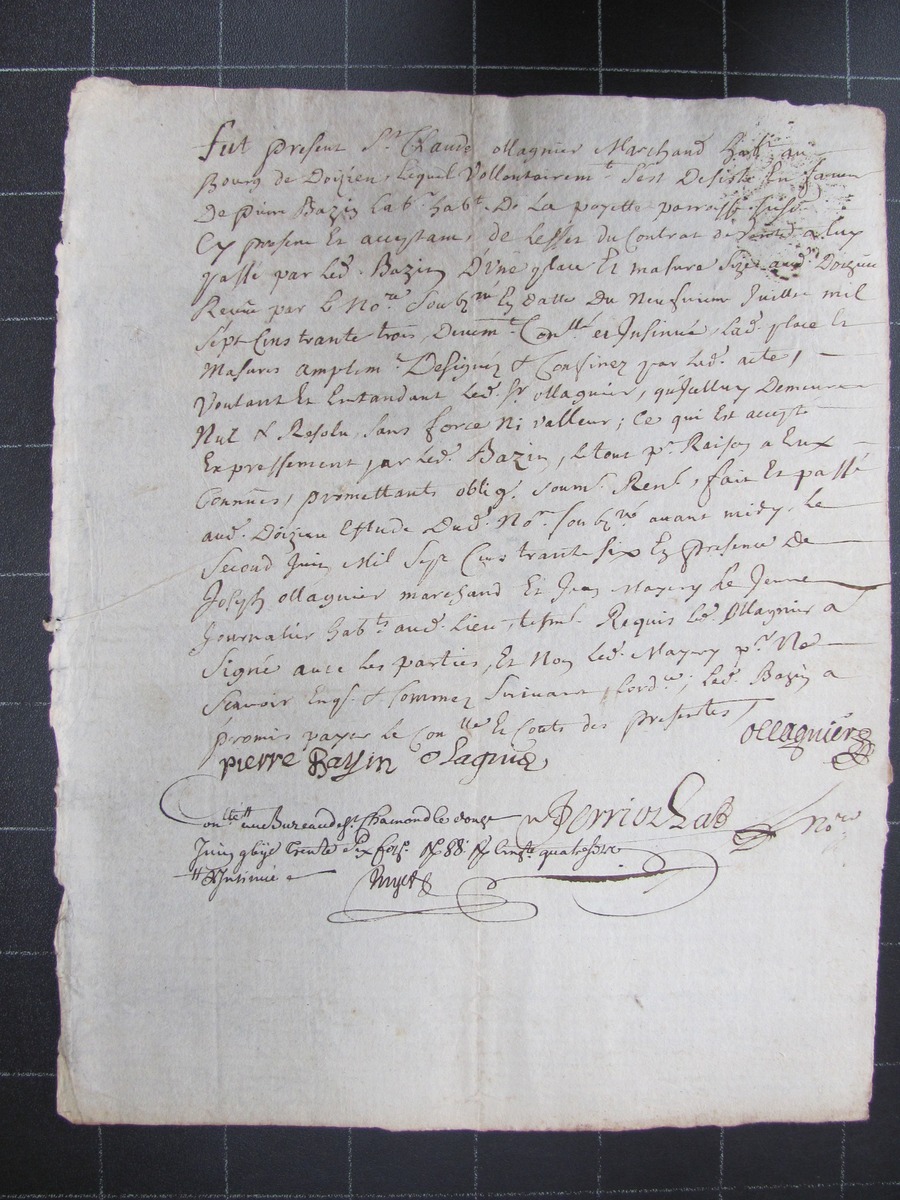 Fut present Sr. Claude ollagnier Marchand habt. au
Bourg de Doizieu, lequel Vollontairemt. s'est Desisté En faveur
De pierre Bazin lab. habt. De La poyette parroisse susd.
Cy present Et acceptant, de Leffet du Contrat de Vente a luy
passé par Led. Bazin D'une place Et masure size aud. Doizieu
Receu par le Nore. Soubzné En datte du Neufvieme Juillet mil
Sept Cens trante trois, Deuemt. Conllé et Insinué, Lad. place Et
Masures amplemt. Designéz & Confinez par Led. acte,
Voulant Et Entandant Led. Sr. ollagnier, qu'Icelluy Demeure
Nul & Resolu, sans force Ni valleur; Ce qui Est accepté
Expressement par Led. Bazin, Le tout pr. Raison a Eux
Connues, promettants oblig. soum. Renl., fait Et passé
aud. Doizieu Estude Dud. Nore. soubzné avant midy, le
Second Juin Mil Sept Cens trante six En presence De
Joseph ollagnier marchand Et Jean Mayery Le Jeune
Journalier habts. aud. Lieu, tesm. Requis Led. Ollagnier a
Signé avec Les parties, Et Non Led. Mayery pr. Ne
Scavoir Enq. & Sommez Suivant Lord.ce; Led. Bazin a
promis payer Le Conlle Et Couts des presentes
ollagnier
pierre Basin olagnié
Conllé au Bureau de St. Chamond le douze
Nore
Juin gbijc trente Six fol. 88
& Insinué